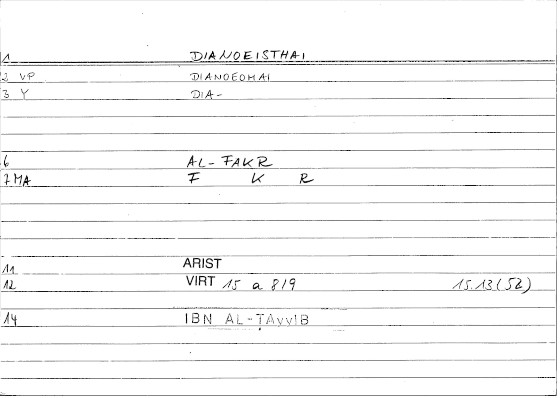 1 DIANOEISTHAI
2 VP DIANOEOMAI
3 Y DIA-
6 AL-FAKR
7 MA F K R
11 ARIST
12 VIRT 15 a 8/9 15.13(52)
14 IBN AL-ṬAYYIB